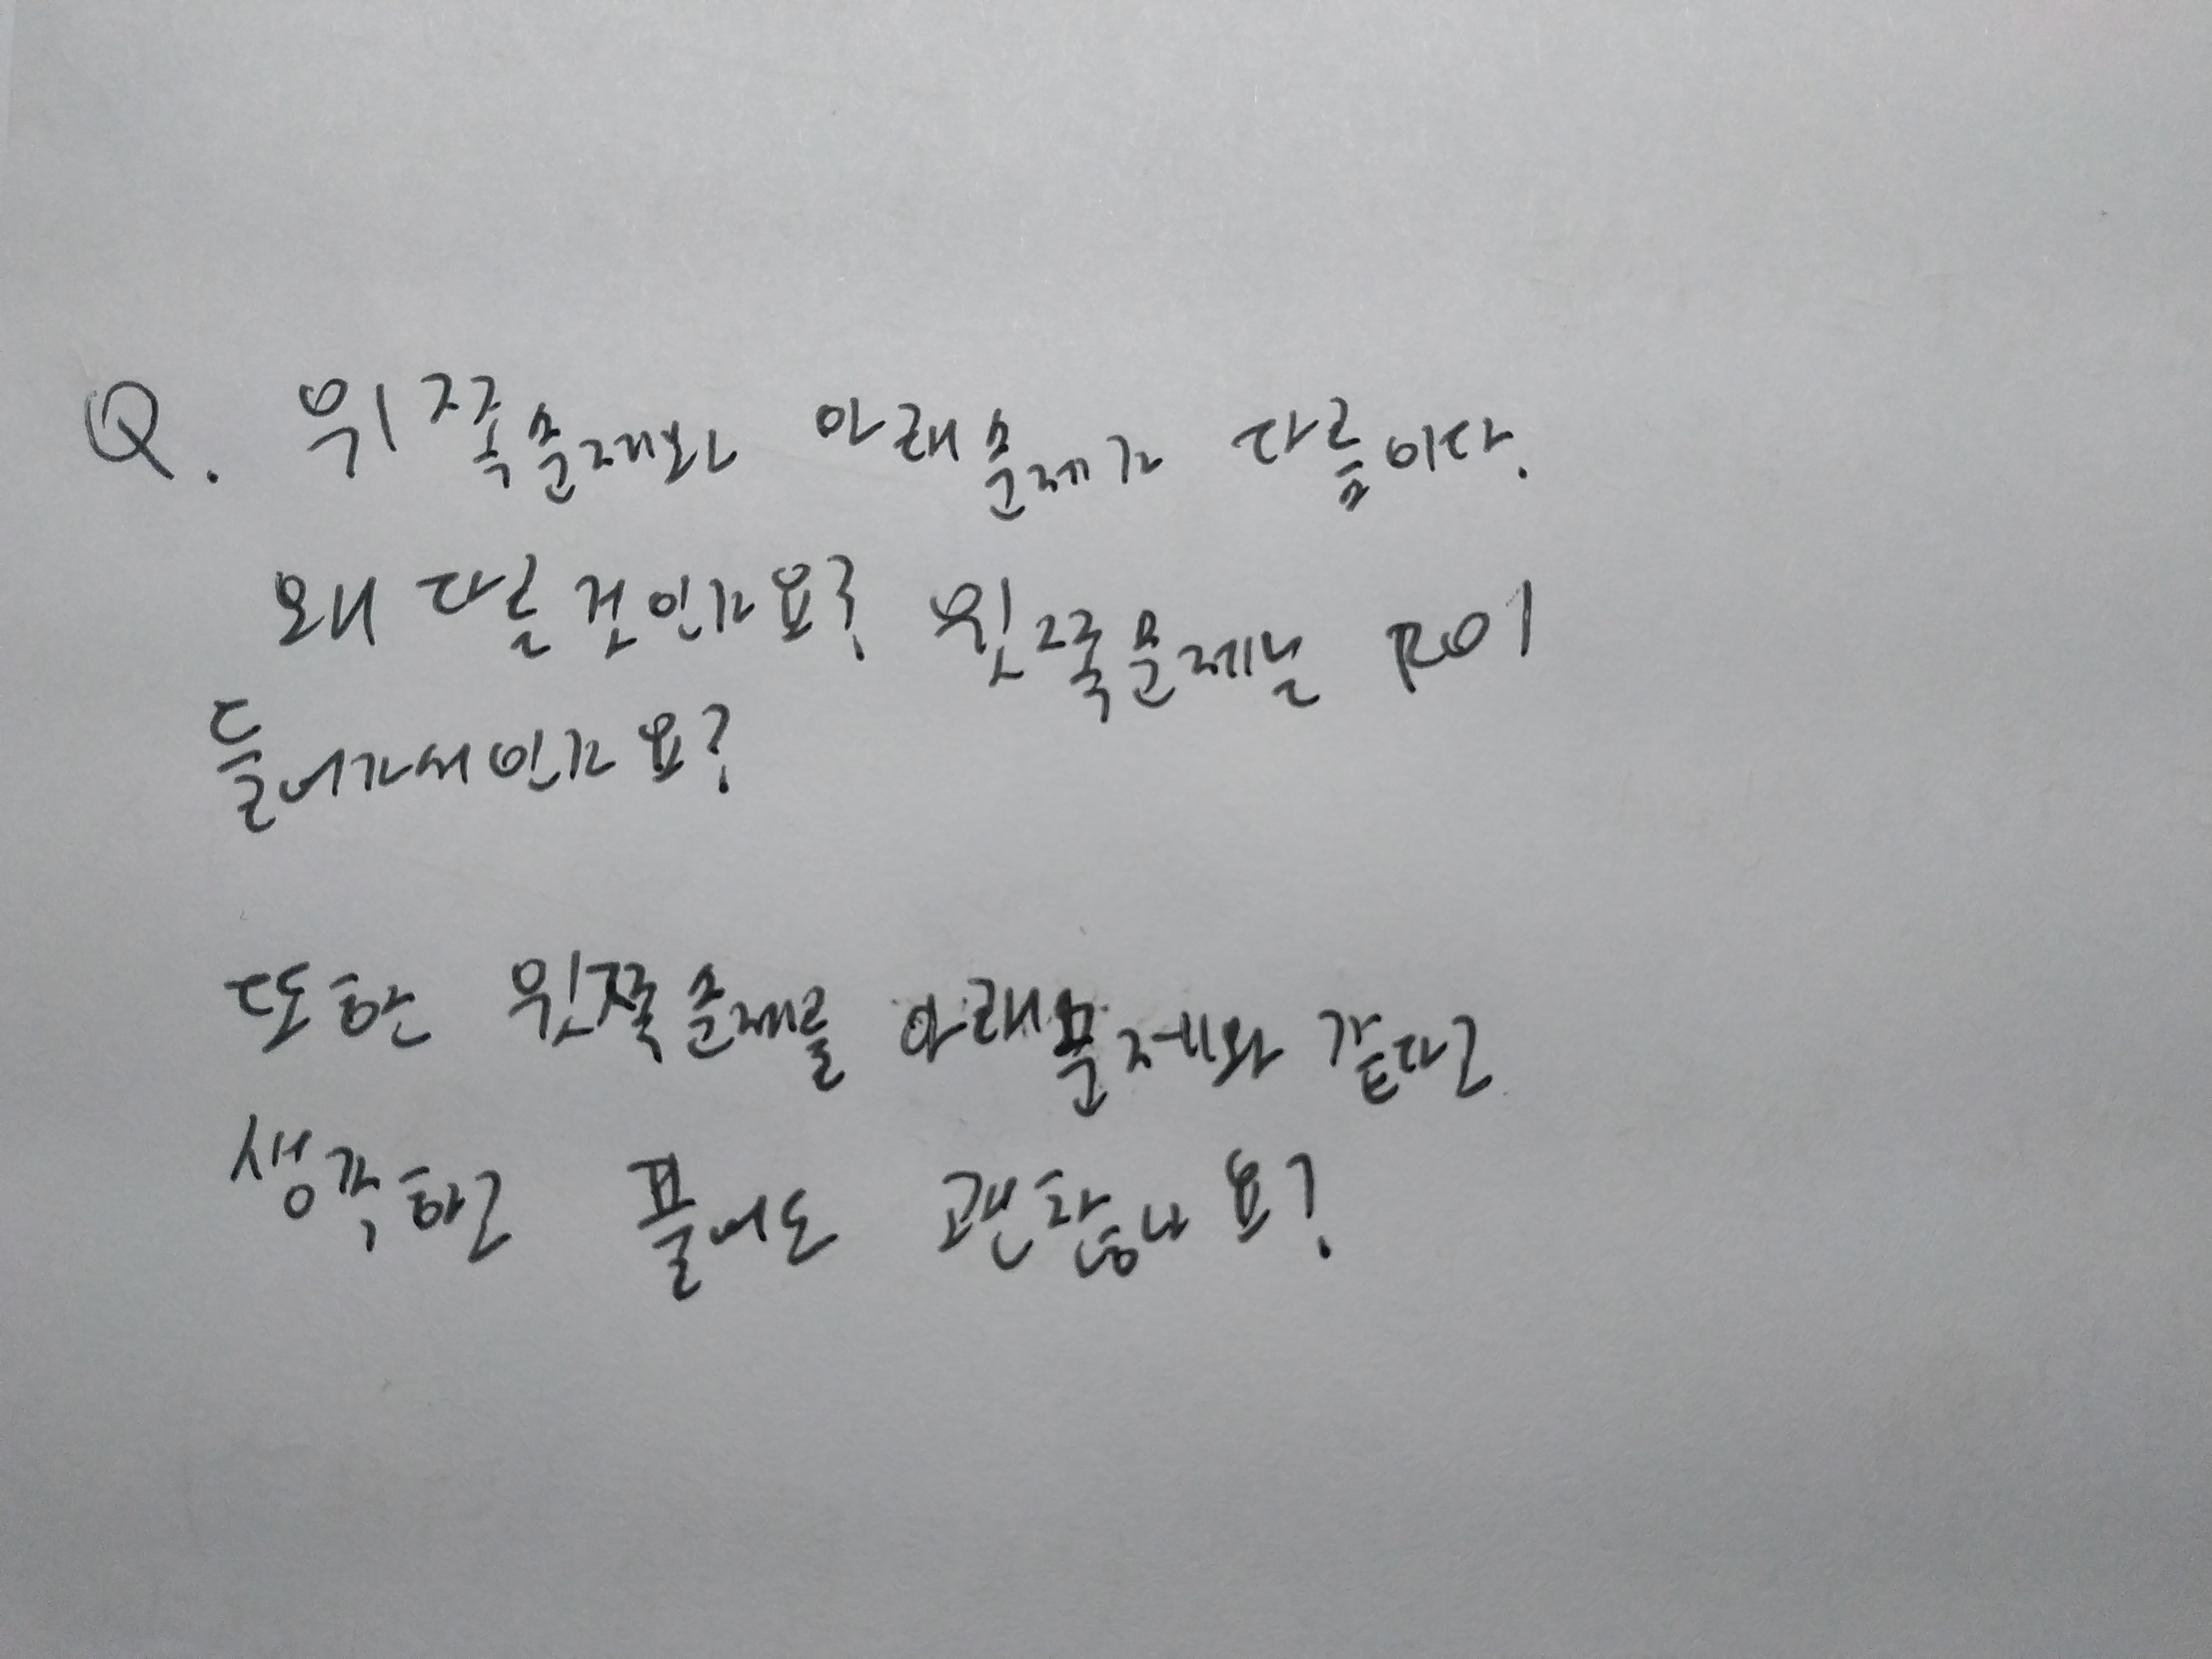 Q. 위쪽문제와 아래문제가 다름이다.
왜 다른 것인가요? 윗쪽문제는 R01
들어가서인가요?
또한 윗쪽문제를 아래문제와 같다고
생각하고 풀어도 괜찮나요?